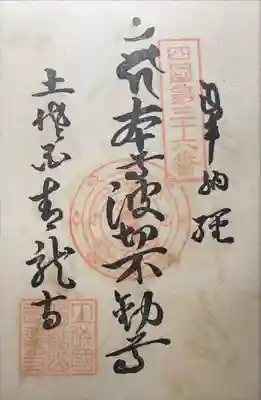 四國第三十六番
奉納経
本尊波切不動尊
土佐国青龍寺